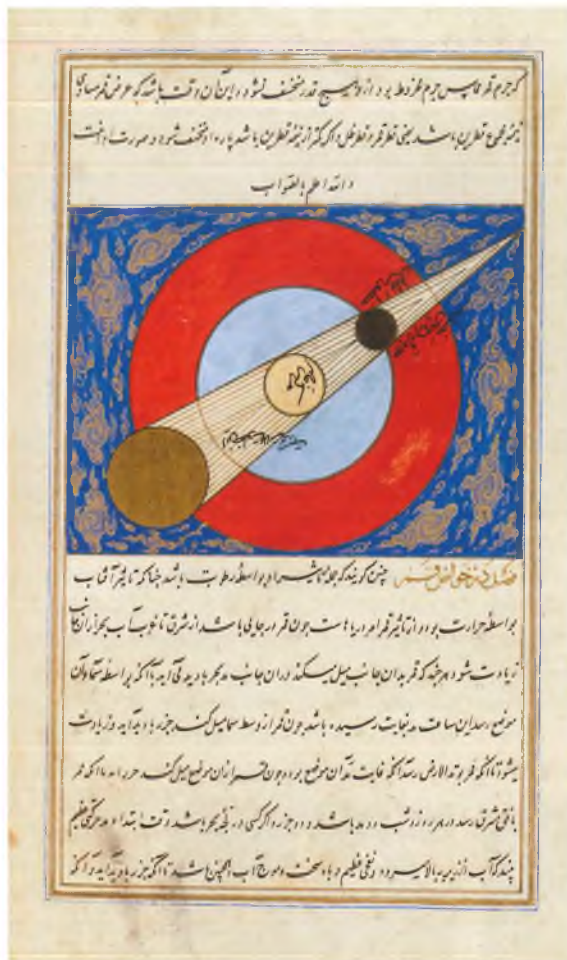 که جرم قمر مماس جرم مخروط بود از او هیچ قدر منخسف نشود و این آن وقت باشد که عرض قمر مساوی
نیمه مجموع قطرین باشد یعنی قطر قمر و قطر ظل و اگر کمتر از نیمه قطرین باشد پاره او منخسف شود و صورت اینست
والله اعلم بالصواب
فصل در خواص قمر چنین گویند که جمله تاثیرات او بواسطه رطوبت باشد چنانکه تاثیر آفتاب
بواسطه حرارت بود و از تاثیر قمر امر دریاهاست چون قمر در جایی باشد از شرق تا غرب آب بحر از آن جانب
زیادت شود هر چند که قمر بدان جانب میل میکند در آن جانب مد بحر پدید می آید تا آنکه بواسطه سماء آن
موضع رسد این ساعت مد بنهایت رسیده باشد چون قمر از وسط سما میل کند جزر پدید آید و زیادت
میشود تا آنکه قمر بوتد الارض رسد آنکه غایت مد آن موضع بود و چون قمر از آن موضع میل کند جزر تا آنکه قمر
بافق مشرق رسد و در هر روز و شب دو مد باشد و دو جزر و اگر کسی در لجه بحر باشد وقت ابتداء مد حرکتی عظیم
بیند که آب از زیر به بالا میرود و نفخی عظیم و باد سخت و موج آب همچنین باشد تا آنکه جزر پدید آید